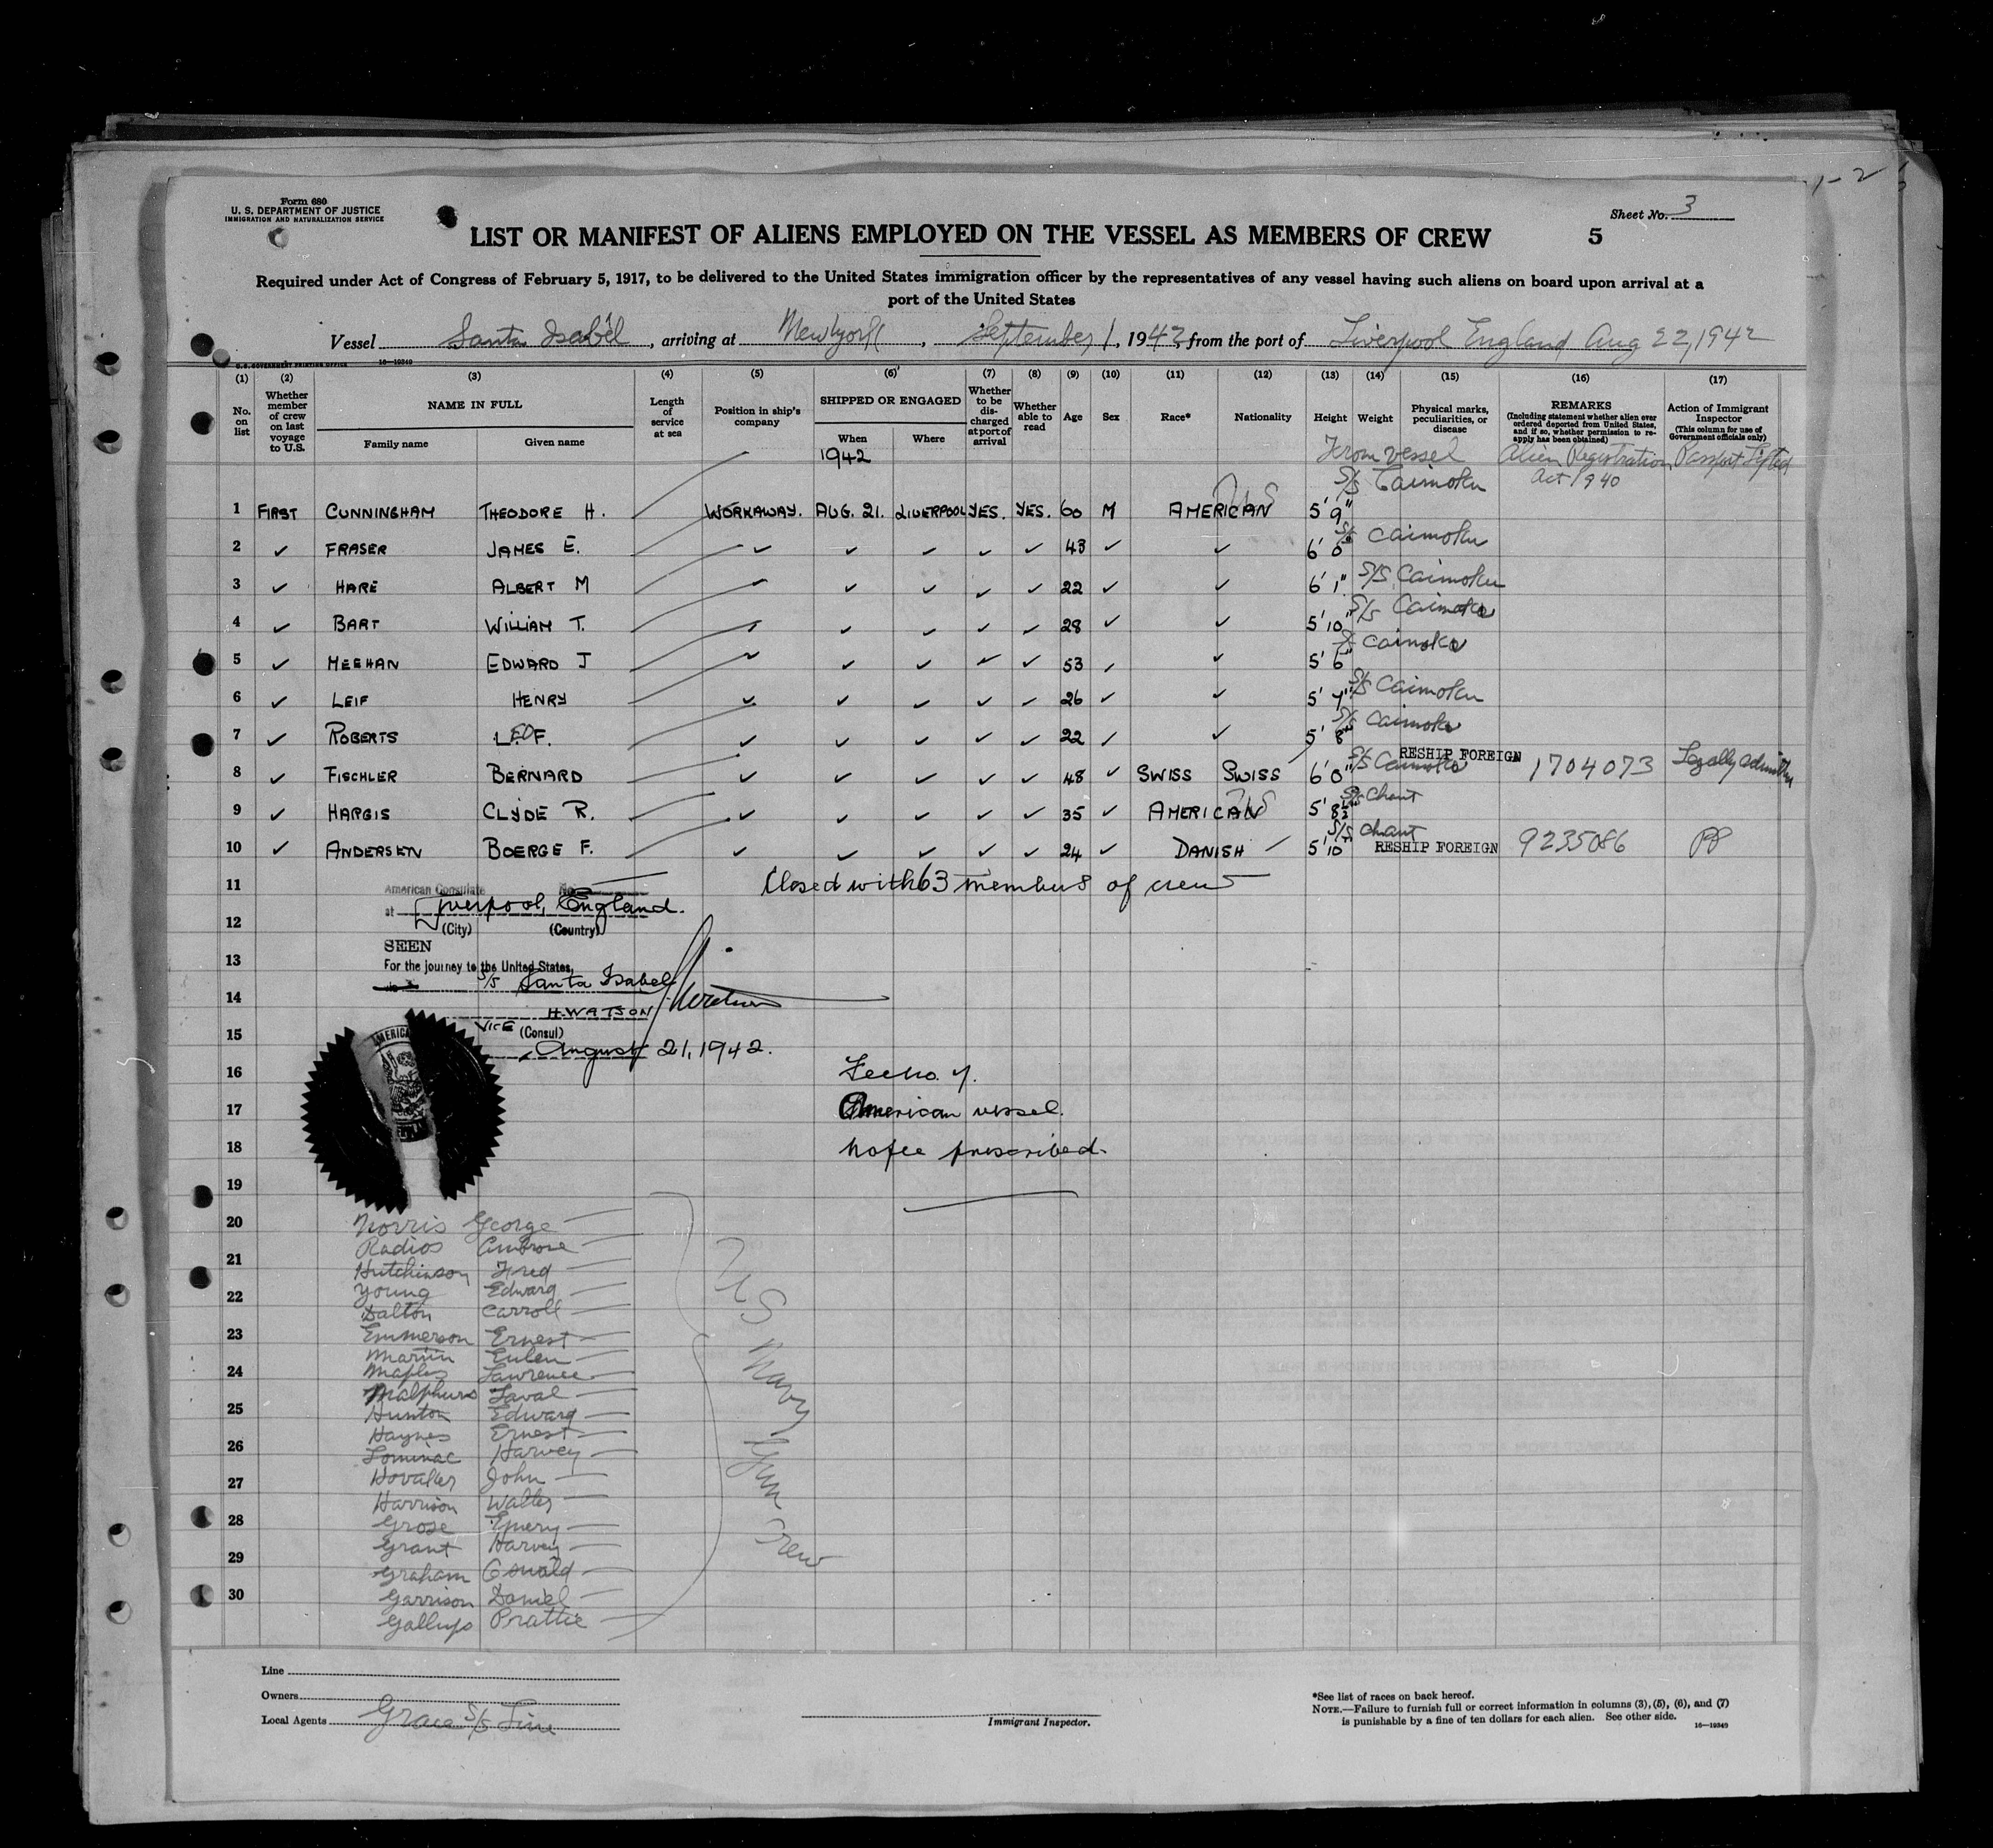 1-2
Form 680
U. S. DEPARTMENT OF JUSTICE
IMMIGRATION AND NATURALIZATION SERVICE
Sheet No. 3
LIST OR MANIFEST OF ALIENS EMPLOYED ON THE VESSEL AS MEMBERS OF CREW 5
Required under Act of Congress of February 5, 1917, to be delivered to the United States immigration officer by the representatives of any vessel having such aliens on board upon arrival at a
port of the United States
Vessel Santa Isabel, arriving at New York, September 1, 1942, from the port of Liverpool England Aug 22, 1942
U.S. GOVERNMENT PRINTING OFFICE 16—19349
(1) (2) (3) (4) (5) (6) (7) (8) (9) (10) (11) (12) (13) (14) (15) (16) (17)
No. on list
Whether member of crew on last voyage to U.S.
NAME IN FULL
Family name
Given name
Length of service at sea
Position in ship's company
SHIPPED OR ENGAGED
When
Where
Whether to be discharged at port of arrival
Whether able to read
Age
Sex
Race*
Nationality
Height
Weight
Physical marks, peculiarities, or disease
REMARKS
(Including statement whether alien ever ordered deported from United States, and if so, whether permission to reapply has been obtained)
Action of Immigrant Inspector
(This column for use of Government officials only)
1942 From vessel Alien Registration Passport Lifted
S/S Caimoku Act 1940
1 FIRST CUNNINGHAM THEODORE H. WORKAWAY. AUG. 21. LIVERPOOL YES. YES. 60 M AMERICAN US 5' 9"
2 ✓ FRASER JAMES E. ✓ ✓ ✓ ✓ ✓ 43 ✓ ✓ 6' 0" S/S Caimoku
3 ✓ HARE ALBERT M ✓ ✓ ✓ ✓ ✓ 22 ✓ ✓ 6' 1" S/S Caimoku
4 ✓ BART WILLIAM T. ✓ ✓ ✓ ✓ ✓ 28 ✓ ✓ 5' 10" S/S Caimoku
5 ✓ MEEHAN EDWARD J ✓ ✓ ✓ ✓ ✓ 53 ✓ ✓ 5' 6" S/S Caimoku
6 ✓ LEIF HENRY ✓ ✓ ✓ ✓ ✓ 26 ✓ ✓ 5' 7" S/S Caimoku
7 ✓ ROBERTS LEO F. ✓ ✓ ✓ ✓ ✓ 22 ✓ ✓ 5' 8" S/S Caimoku
8 ✓ FISCHLER BERNARD ✓ ✓ ✓ ✓ ✓ 48 ✓ SWISS SWISS 6' 0" S/S Caimoku RESHIP FOREIGN 1704073 Legally admitted
9 ✓ HARGIS CLYDE R. ✓ ✓ ✓ ✓ ✓ 35 ✓ AMERICAN US 5' 8½" S/S Chant
10 ✓ ANDERSEN BOERGE F. ✓ ✓ ✓ ✓ ✓ 24 ✓ DANISH ✓ 5' 10" S/S Chant RESHIP FOREIGN 9235086 PP
11 American Consulate No. Closed with 63 members of crew
at Liverpool, England.
12 (City) (Country)
SEEN
13 For the journey to the United States,
S/S Santa Isabel
14
H. WATSON
15 VICE (Consul)
August 21, 1942.
AMERICA
16
17 American vessel.
18 No fee prescribed.
19
20 Norris George
Radios Ambrose
21 Hutchinson Fred
22 Young Edward
Dalton Carroll
23 Emmerson Ernest
Martin Eulen
24 Maples Lawrence
Malphurs Laval
25 Hunton Edward
Haynes Ernest
26 Lominac Harvey
27 Hovatter John
Harrison Walter
28 Grose Emery
Grant Harvey
29 Graham Oswald
30 Garrison Daniel
Gallups Prattie
US Navy Gun Crew
Line
Owners
Local Agents Grace S/S Line
Immigrant Inspector.
*See list of races on back hereof.
NOTE.—Failure to furnish full or correct information in columns (3), (5), (6), and (7)
is punishable by a fine of ten dollars for each alien. See other side.
16—19349